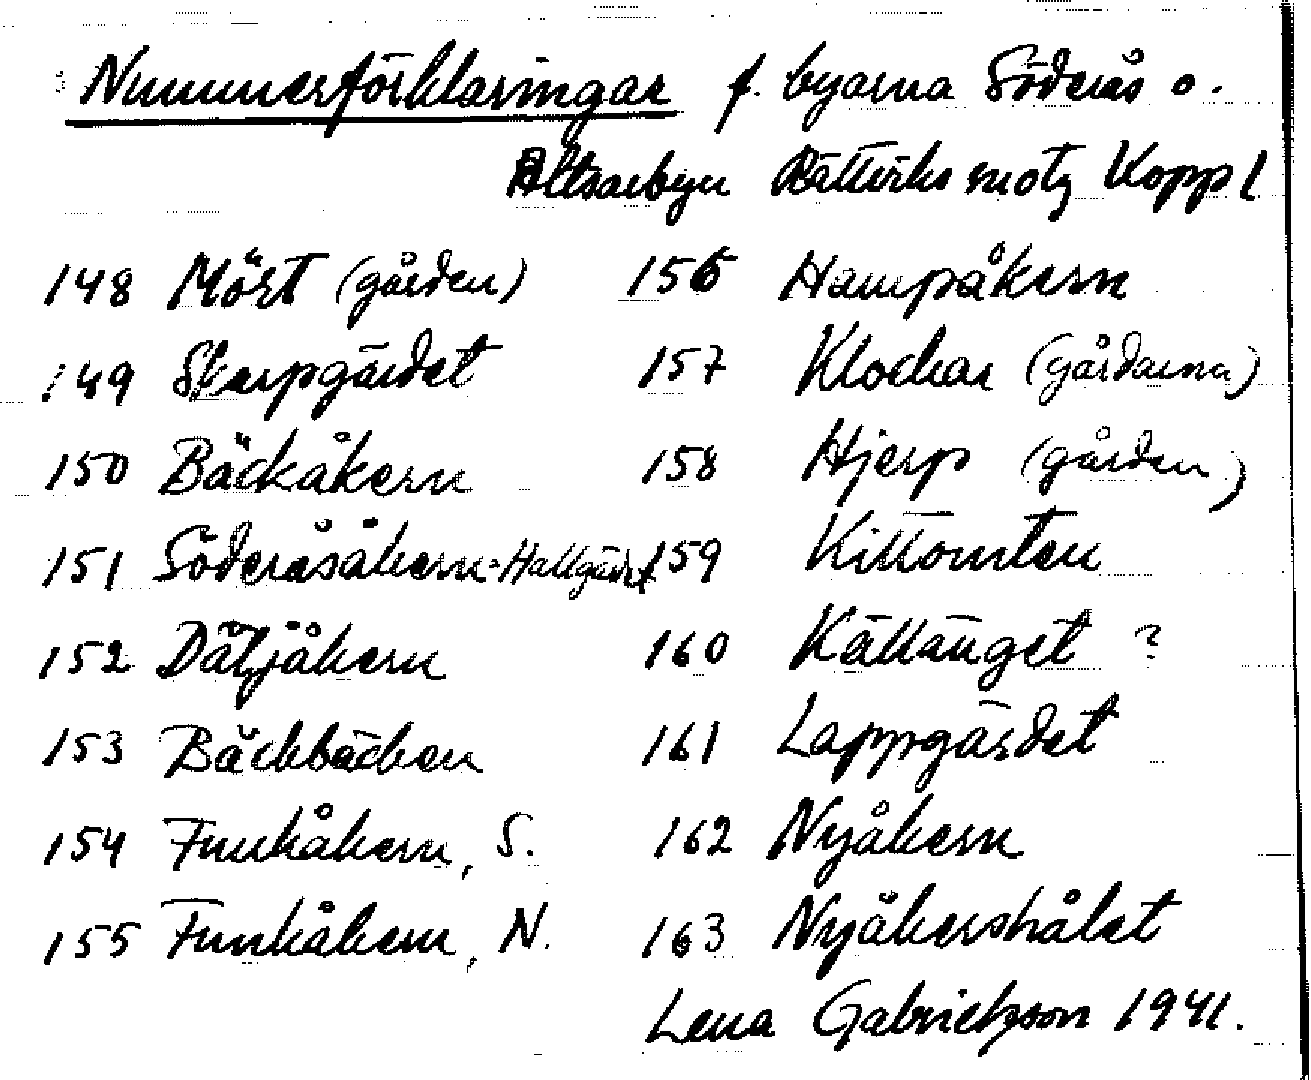 Nummerförklaringar f. byarna Söderås o.
Altsarbyn Rättviks Koppl
148 Mört (gården)
149 Skarpgärdet
150 Bäckåkern
151 Söderåsåkern - Hallgärdet
152 Dåljåkern
153 Bäckbäcken
154 Funkåkern, S.
155 Funkåkern, N.
156 Hampåkern
157 Klockar (gårdarna)
158 Hjerp (gården)
159 Killomten
160 Källänget ?
161 Lappgärdet
162 Nyåkern
163 Nyåkershålet
Lena Gabrielsson 1941.